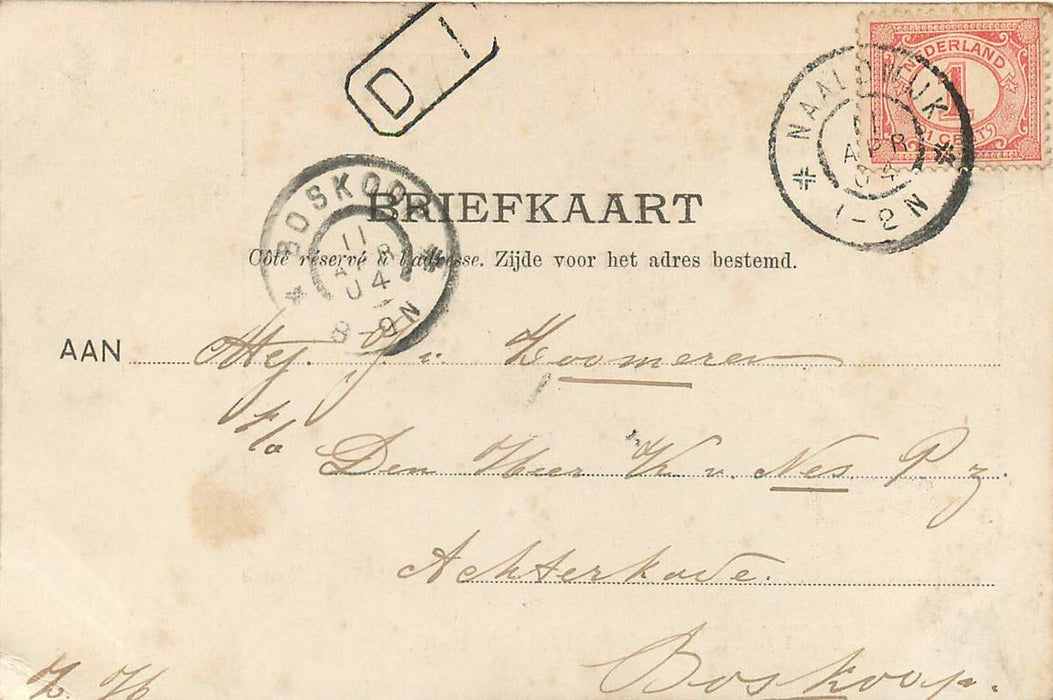 D I
NEDERLAND
1
1 CENT
NAALDWIJK
11
APR
04
1-2N
BOSKOOP
11
APR
04
8-9N
BRIEFKAART
Côté réservé à l'adresse. Zijde voor het adres bestemd.
AAN Mej. J v. Zoomeren
p/a Den Heer K v. Nes P z.
Achterkade.
Boskoop.
Z. H.